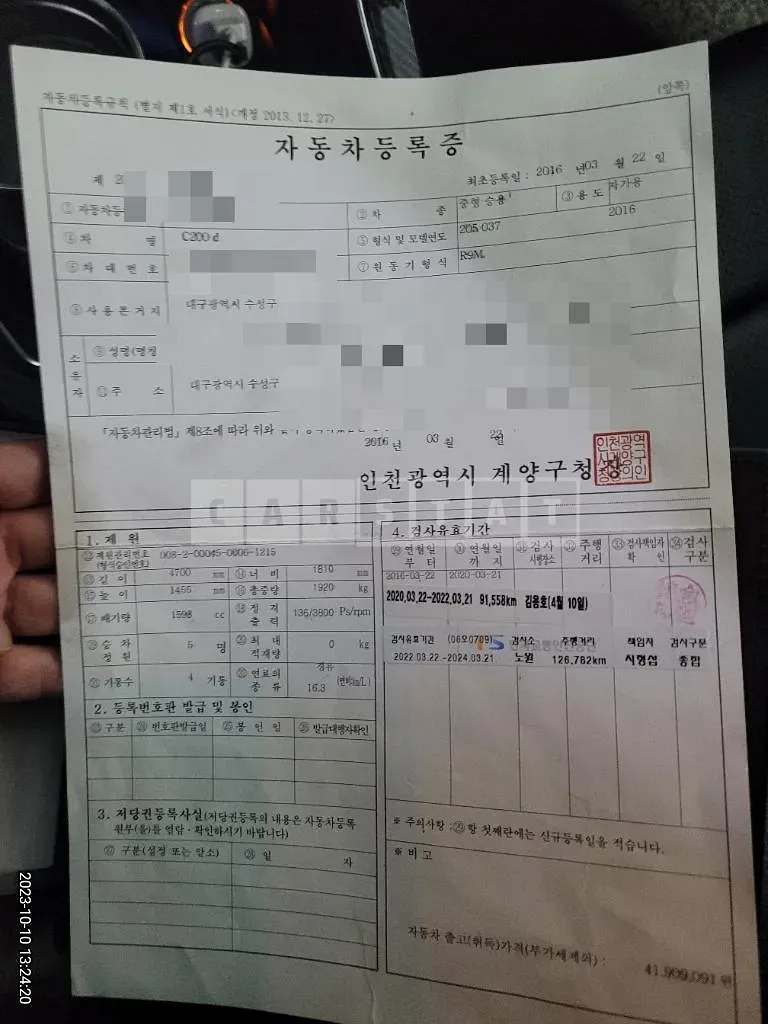 자동차등록규칙 (별지 제1호 서식)<개정 2013.12.27>
(앞쪽)
자동차등록증
제 2
최초등록일 : 2016 년 03 월 22 일
① 자동차등
② 차 종 중형 승용
③ 용 도 자가용
④ 차 명 C200 d
⑤ 형식 및 모델연도 205-037 2016
⑥ 차 대 번 호
⑦ 원 동 기 형 식 R9M
⑧ 사 용 본 거 지 대구광역시 수성구
소유자
⑨ 성명(명칭
대구광역시 수성구
주 소
「자동차관리법」 제8조에 따라 위와
2016 년 03 월 22일
인천광역시 계양구청장
인천광역
시계양구
청장의인
CARSTAT
1. 제 원
제원관리번호 008-2-00045-0006-1215
(형식승인번호)
길 이 4700 mm
너 비 1810 mm
높 이 1455 mm
총중량 1920 kg
배기량 1598 cc
정 격 출 력 136/3800 Ps/rpm
승 차 정 원 5 명
최 대 적재량 0 kg
기통수 4 기통
연료의 종 류 경유 16.3 (연비㎞/L)
2. 등록번호판 발급 및 봉인
구분 번호판발급일 봉 인 일 발급대행자확인
3. 저당권등록사실(저당권등록의 내용은 자동차등록
원부(을)를 열람ㆍ확인하시기 바랍니다)
구분(설정 또는 말소) 일 자
4. 검사유효기간
연월일 부 터
연월일 까 지
검사 시행장소
주행 거리
검사책임자 확 인
검사 구분
2016-03-22 2020-03-21
2020.03.22~2022.03.21 91,558km 김용호(4월 10일)
검사유효기간 (06오0709) 검사소 주행거리 책임자 검사구분
2022.03.22.~2024.03.21. 노원 126,782km 서정섭 종합
※ 주의사항 : ㉙항 첫째란에는 신규등록일을 적습니다.
※ 비 고
자동차 출고(취득)가격(부가세제외) : 41,909,091 원
2023-10-10 13:24:20